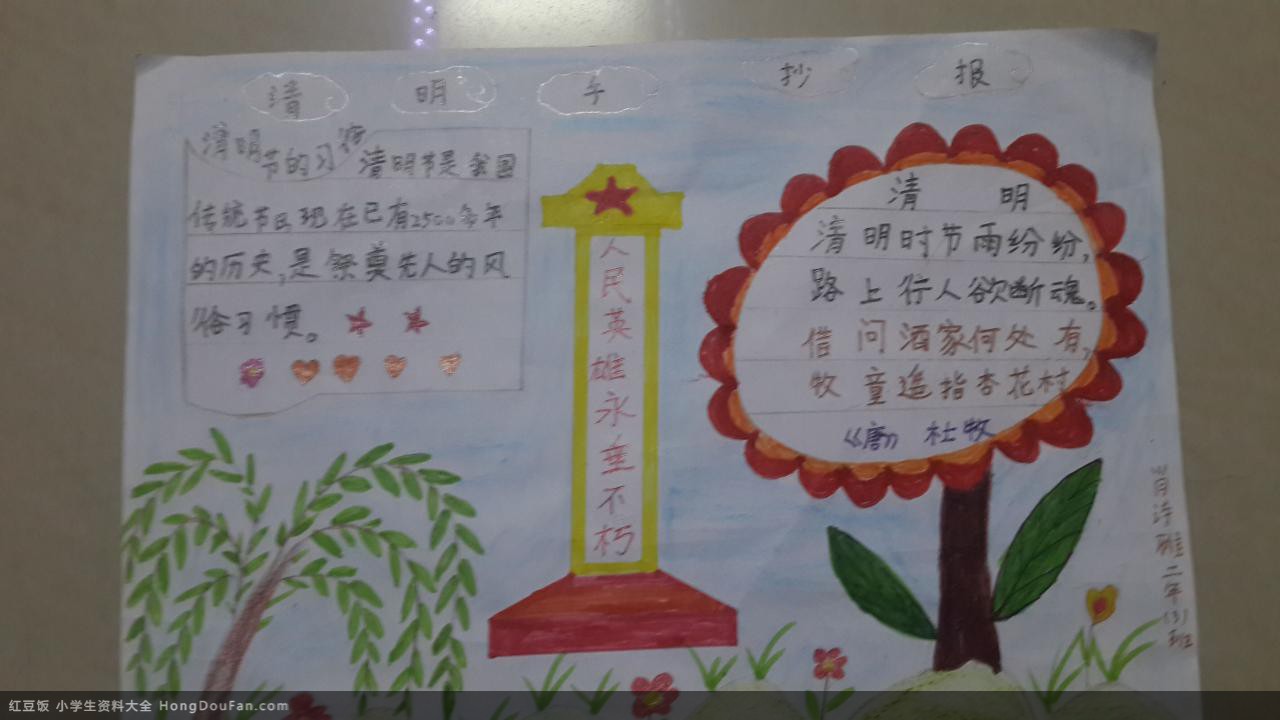 清 明 手 抄 报
清明节的习俗 清明节是我国
传统节日现在已有2500多年
的历史,是祭奠先人的风
俗习惯。
人民英雄永垂不朽
清 明
清明时节雨纷纷,
路上行人欲断魂。
借问酒家何处有,
牧童遥指杏花村
《唐》 杜牧
肖诗雅二年(3)班
红豆饭 小学生资料大全 HongDouFan.com